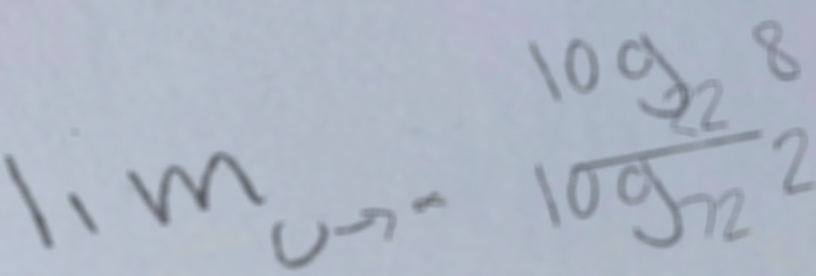 lim_{u→-} \frac{log_{22} 8}{log_{72} 2}